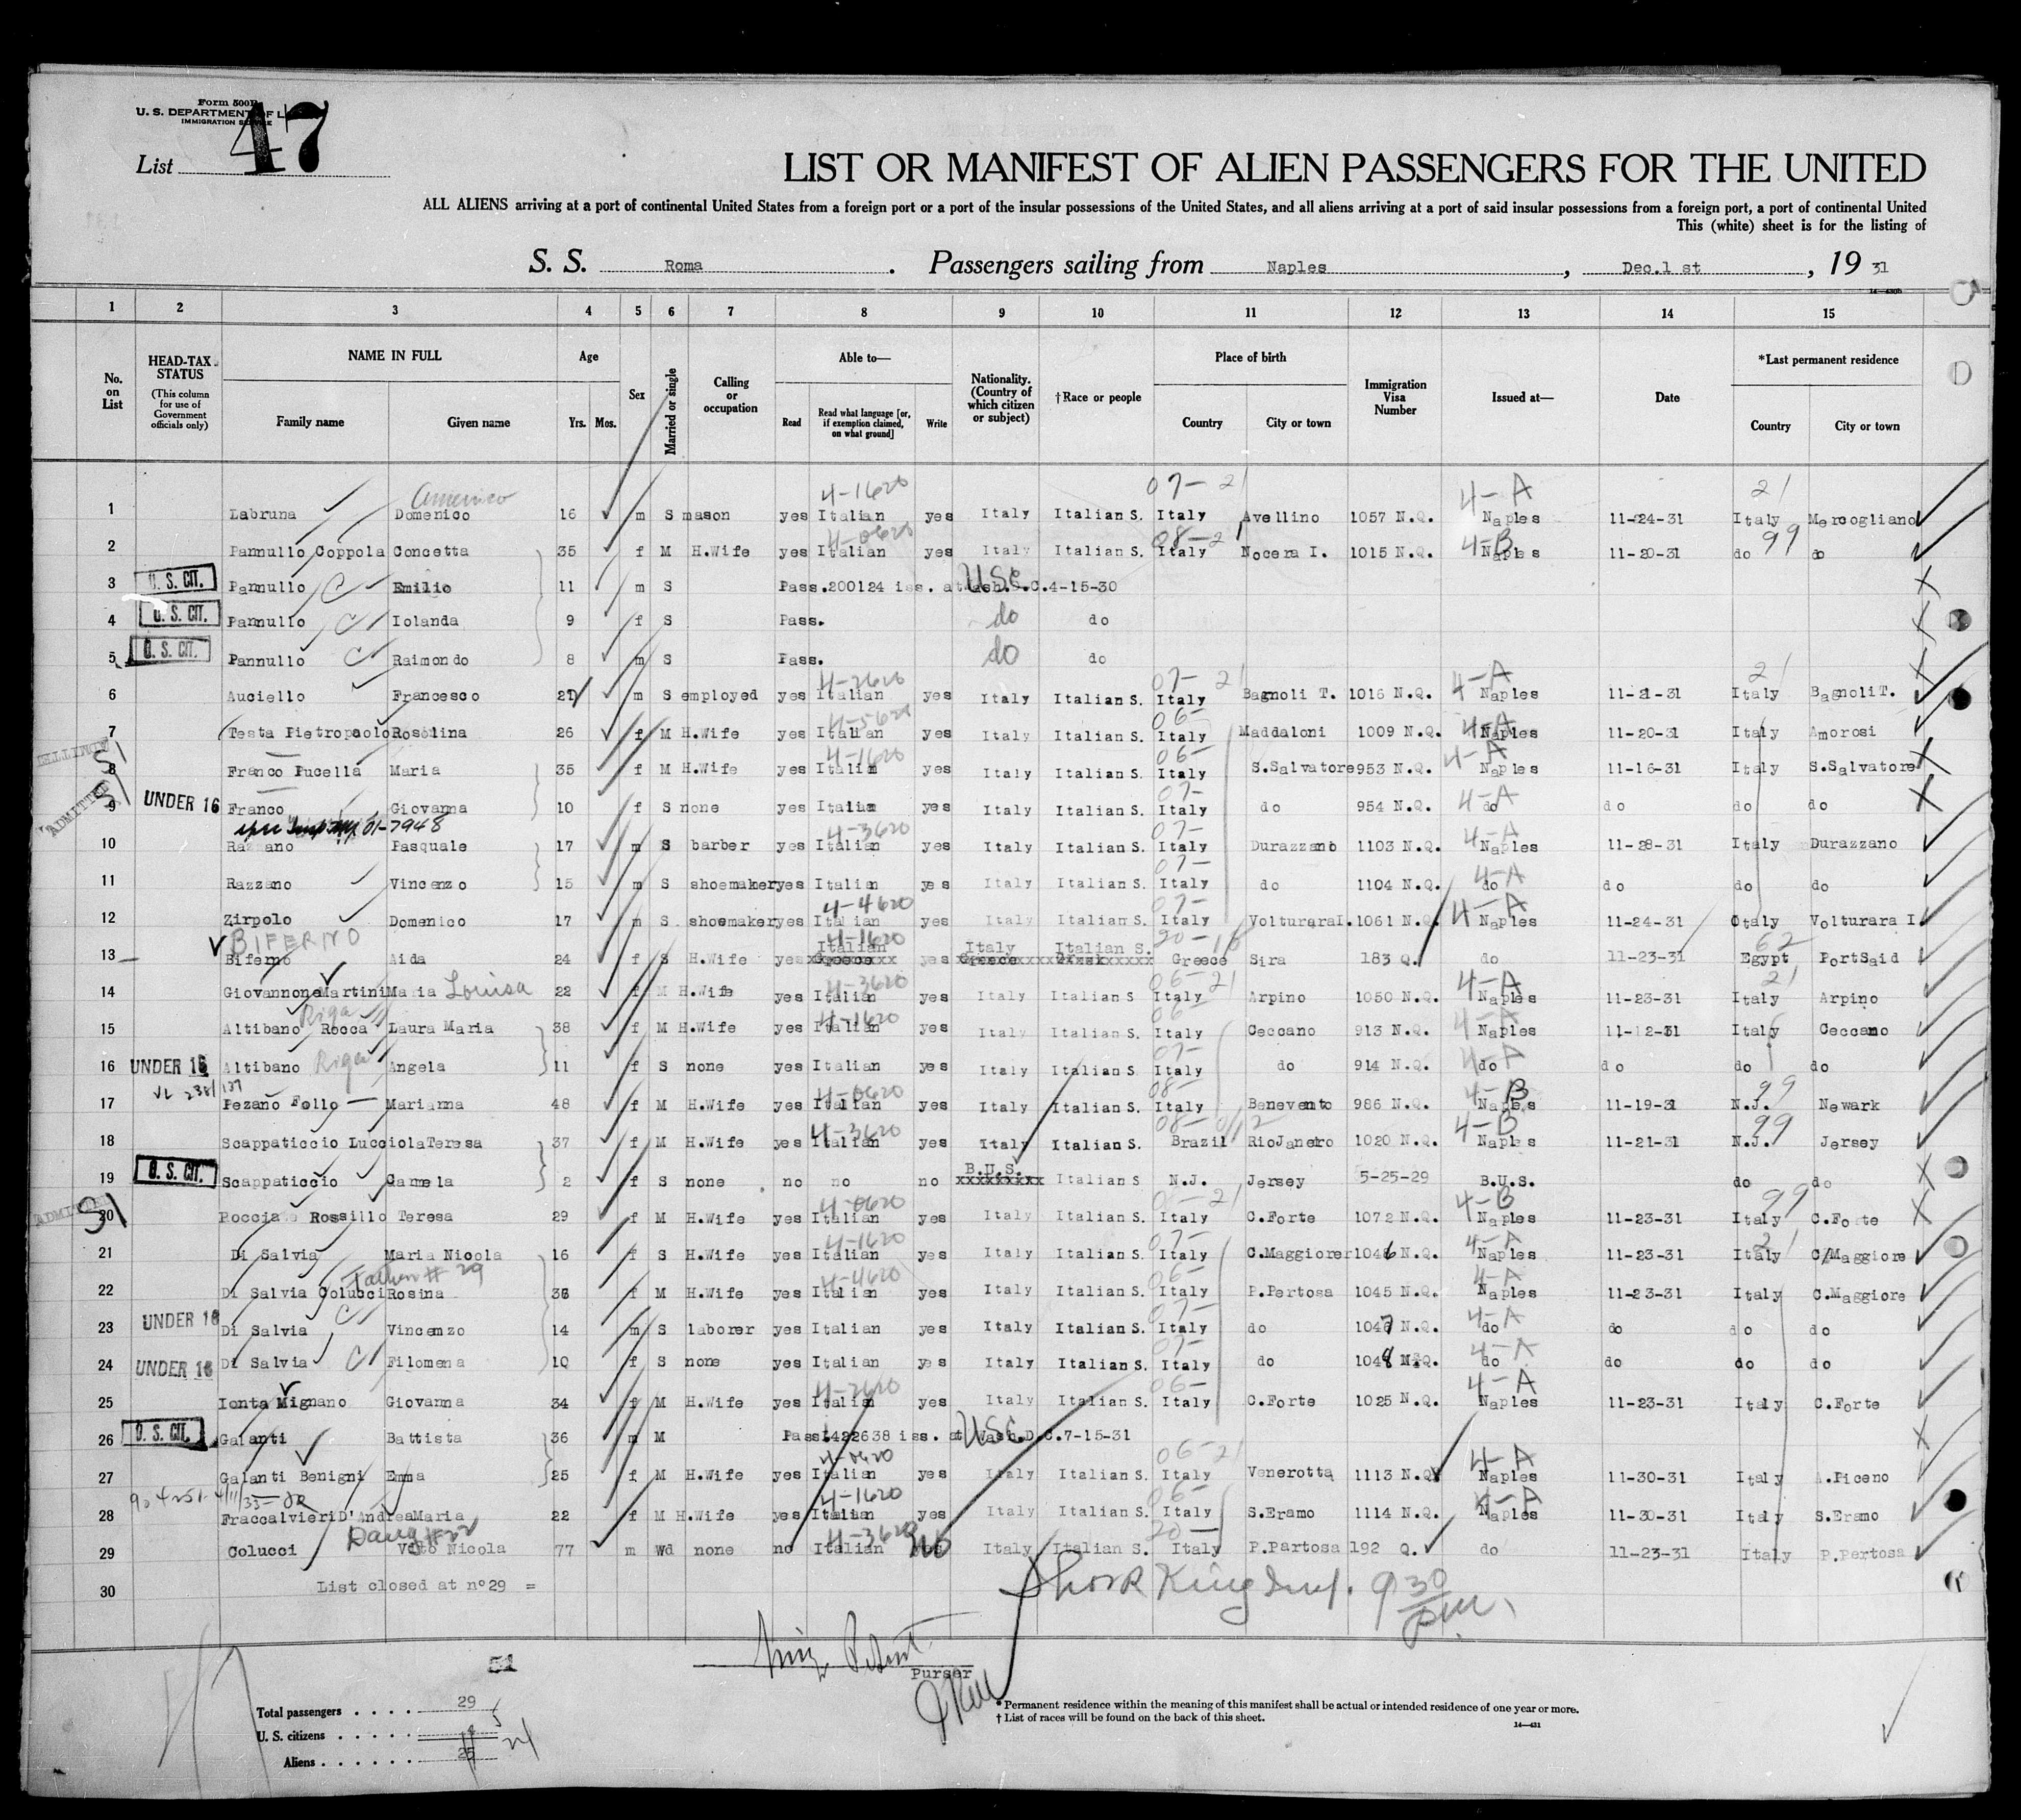 Form 500B
U. S. DEPARTMENT OF L
IMMIGRATION SERVICE
List 47
LIST OR MANIFEST OF ALIEN PASSENGERS FOR THE UNITED
ALL ALIENS arriving at a port of continental United States from a foreign port or a port of the insular possessions of the United States, and all aliens arriving at a port of said insular possessions from a foreign port, a port of continental United
This (white) sheet is for the listing of
S. S. Roma . Passengers sailing from Naples , Dec.1 st , 19 31
14—430b
1 2 3 4 5 6 7 8 9 10 11 12 13 14 15
No. on List
HEAD-TAX STATUS (This column for use of Government officials only)
NAME IN FULL Family name Given name
Age Yrs. Mos.
Sex
Married or single
Calling or occupation
Able to— Read Read what language [or, if exemption claimed, on what ground] Write
Nationality. (Country of which citizen or subject)
†Race or people
Place of birth Country City or town
Immigration Visa Number
Issued at—
Date
*Last permanent residence Country City or town
Americo 4-1620 07- 21 4-A 21
1 Labruna Domenico 16 m S mason yes Italian yes Italy Italian S. Italy Avellino 1057 N.Q. Naples 11-24-31 Italy Mercogliano
4-0620 08-21 4-B 99
2 Pannullo Coppola Concetta 35 f M H.Wife yes Italian yes Italy Italian S. Italy Nocera I. 1015 N.Q. Naples 11-20-31 do do
3 U. S. CIT. Pannullo Emilio 11 m S Pass.200124 iss. at Wash.D.C.4-15-30 USC
4 U. S. CIT. Pannullo Iolanda 9 f S Pass. do do
5 U. S. CIT. Pannullo Raimondo 8 m S Pass. do do
4-2620 07- 21 4-A 21
6 Auciello Francesco 21 m S employed yes Italian yes Italy Italian S. Italy Bagnoli T. 1016 N.Q. Naples 11-21-31 Italy Bagnoli T.
4-5620 06- 4-A
7 Testa Pietropaolo Rosolina 26 f M H.Wife yes Italian yes Italy Italian S. Italy Maddaloni 1009 N.Q. Naples 11-20-31 Italy Amorosi
ADMITTED 4-1620 06- 4-A
8 Franco Pucella Maria 35 f M H.Wife yes Italin yes Italy Italian S. Italy S.Salvatore 953 N.Q. Naples 11-16-31 Italy S.Salvatore
ADMITTED 07- 4-A
9 UNDER 16 Franco Giovanna 10 f S none yes Italian yes Italy Italian S. Italy do 954 N.Q. do do do do
01-7948 4-3620 07- 4-A
10 Razzano Pasquale 17 m S barber yes Italian yes Italy Italian S. Italy Durazzano 1103 N.Q. Naples 11-28-31 Italy Durazzano
07- 4-A
11 Razzano Vincenzo 15 m S shoemaker yes Italian yes Italy Italian S. Italy do 1104 N.Q. do do do do
4-4620 07- 4-A
12 Zirpolo Domenico 17 m S shoemaker yes Italian yes Italy Italian S. Italy Volturara I. 1061 N.Q. Naples 11-24-31 Italy Volturara I.
BIFERNO 4-1620 Italian Italy Italian S. 62
13 Biferno Aida 24 f S H.Wife yes Greece yes Greece Greek Greece Sira 183 Q. do 11-23-31 Egypt PortSaid
4-3620 06-21 4-A 21
14 Giovannone Martini Maria Louisa 22 f M H.Wife yes Italian yes Italy Italian S Italy Arpino 1050 N.Q. Naples 11-23-31 Italy Arpino
Riga 4-1620 06- 4-A
15 Altibano Rocca Laura Maria 38 f M H.Wife yes Italian yes Italy Italian S. Italy Ceccano 913 N.Q. Naples 11-12-31 Italy Ceccano
Riga 07- 4-A
16 UNDER 16 Altibano Angela 11 f S none yes Italian yes Italy Italian S. Italy do 914 N.Q. do do do do
4-0620 08- 4-B 99
17 Pezano Follo Marianna 48 f M H.Wife yes Italian yes Italy Italian S. Italy Benevento 986 N.Q. Naples 11-19-31 N.J. Newark
4-3620 4-B 99
18 Scappaticcio Lucciola Teresa 37 f M H.Wife yes Italian yes Italy Italian S. Brazil RioJanero 1020 N.Q. Naples 11-21-31 N.J. Jersey
B.U.S.
19 U. S. CIT. Scappaticcio Carmela 2 f S none no no no xxxxxxxxx Italian S N.J. Jersey 5-25-29 B.U.S. do do
ADMITTED 4-0620 08-21 4-B 99
20 Roccia Rossillo Teresa 29 f M H.Wife yes Italian yes Italy Italian S. Italy C.Forte 1072 N.Q. Naples 11-23-31 Italy C.Forte
4-1620 07- 4-A 21
21 Di Salvia Maria Nicola 16 f S H.Wife yes Italian yes Italy Italian S. Italy C.Maggiore 1046 N.Q. Naples 11-23-31 Italy C.Maggiore
Father # 29 4-4620 06- 4-A
22 Di Salvia Colucci Rosina 36 f M H.Wife yes Italian yes Italy Italian S. Italy P.Pertosa 1045 N.Q. Naples 11-23-31 Italy C.Maggiore
07- 4-A
23 UNDER 16 Di Salvia Vincenzo 14 m S laborer yes Italian yes Italy Italian S. Italy do 1047 N.Q. do do do do
07- 4-A
24 UNDER 16 Di Salvia Filomena 10 f S none yes Italian yes Italy Italian S. Italy do 1048 N.Q. do do do do
4-2620 06- 4-A
25 Ionta Mignano Giovanna 34 f M H.Wife yes Italian yes Italy Italian S. Italy C.Forte 1025 N.Q. Naples 11-23-31 Italy C.Forte
26 U. S. CIT. Galanti Battista 36 m M Pass.422638 iss. at Wash.D.C.7-15-31 USC
4-0620 06-21 4-A
27 Galanti Benigni Emma 25 f M H.Wife yes Italian yes Italy Italian S. Italy Venerotta 1113 N.Q. Naples 11-30-31 Italy A.Piceno
4-1620 06- 4-A
28 Fraccalvieri D'Andrea Maria 22 f M H.Wife yes Italian yes Italy Italian S. Italy S.Eramo 1114 N.Q. Naples 11-30-31 Italy S.Eramo
Daug # 22 4-3620 20- no
29 Colucci Vito Nicola 77 m Wd none no Italian Italy Italian S. Italy P.Partosa 192 Q. do 11-23-31 Italy P.Pertosa
30 List closed at n°29 =
9 30 pm.
51
Purser
Total passengers . . . . 29
U. S. citizens . . . . . 4 5
Aliens . . . . . . 25 24
* Permanent residence within the meaning of this manifest shall be actual or intended residence of one year or more.
† List of races will be found on the back of this sheet.
14—431